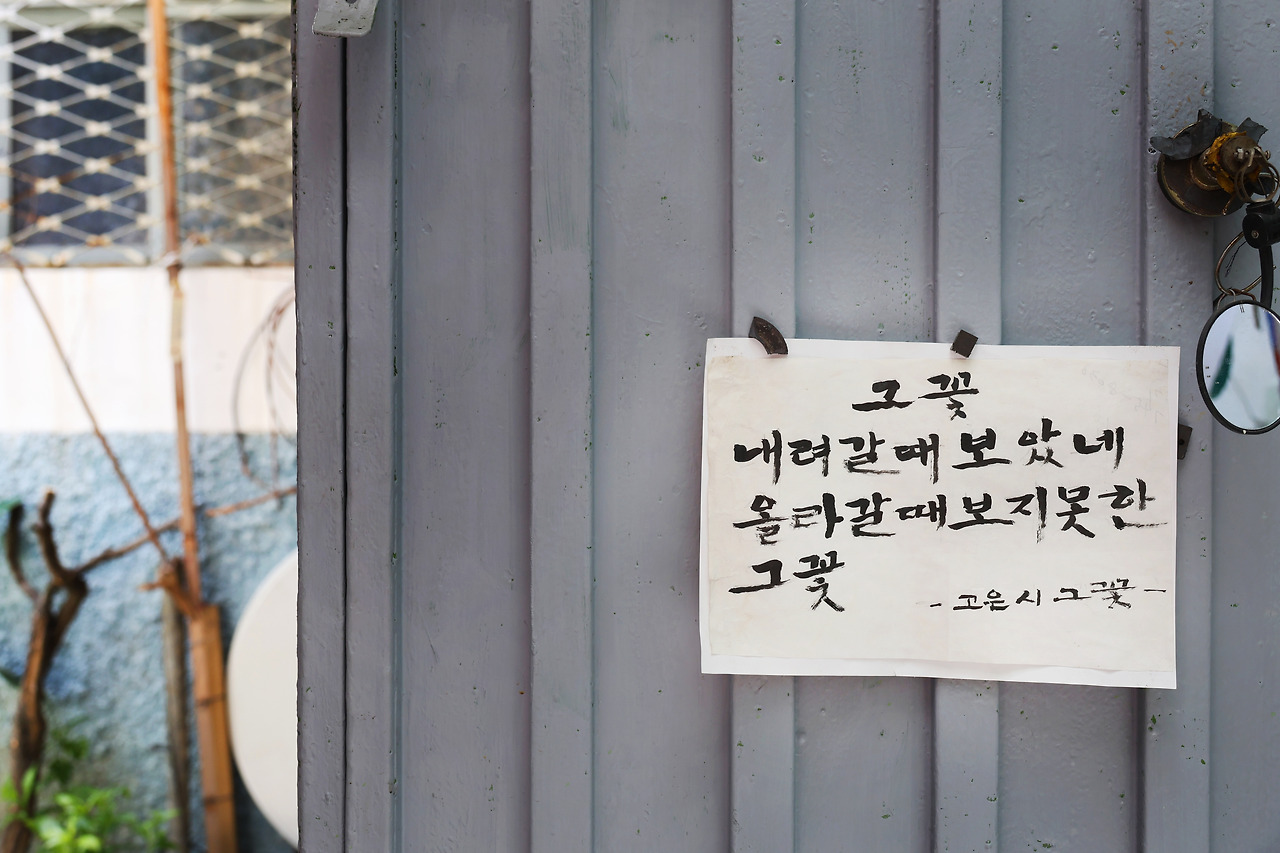 그 꽃
내려갈때 보았네
올라갈때 보지못한
그 꽃
- 고은 시 그 꽃 -